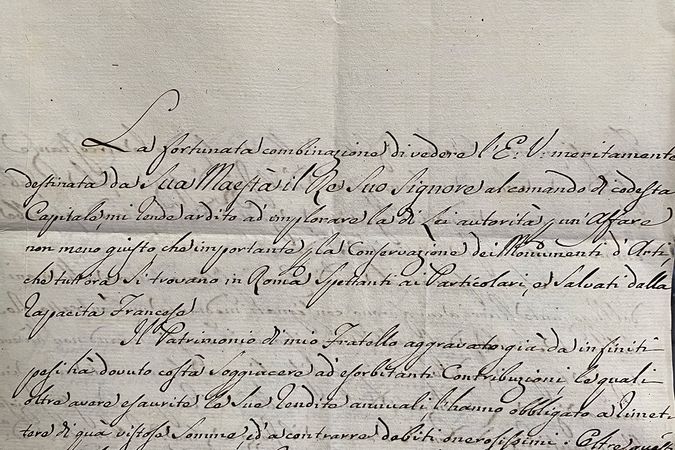 La fortunata combinazione di vedere l'E: V: meritamente
destinata da Sua Maestà il Re Suo Signore al comando di codesta
Capitale, mi rende ardito ad implorare la di Lei autorità p un'Affare
non meno giusto che importante p la Conservazione dei Monumenti d'Arti
che tuttora si trovano in Roma Spettanti ai Particolari, e Salvati dalla
rapacità Francese.
Il Patrimonio di mio Fratello aggravato già da infiniti
pesi hà dovuto costà Soggiacere ad esorbitanti Contribuzioni le quali
oltre avere esaurite le Sue Rendite annuali l'hanno obbligato a rimet-
tere di quà vistose Somme, ed a contrarre debiti onerosissimi. Oltre